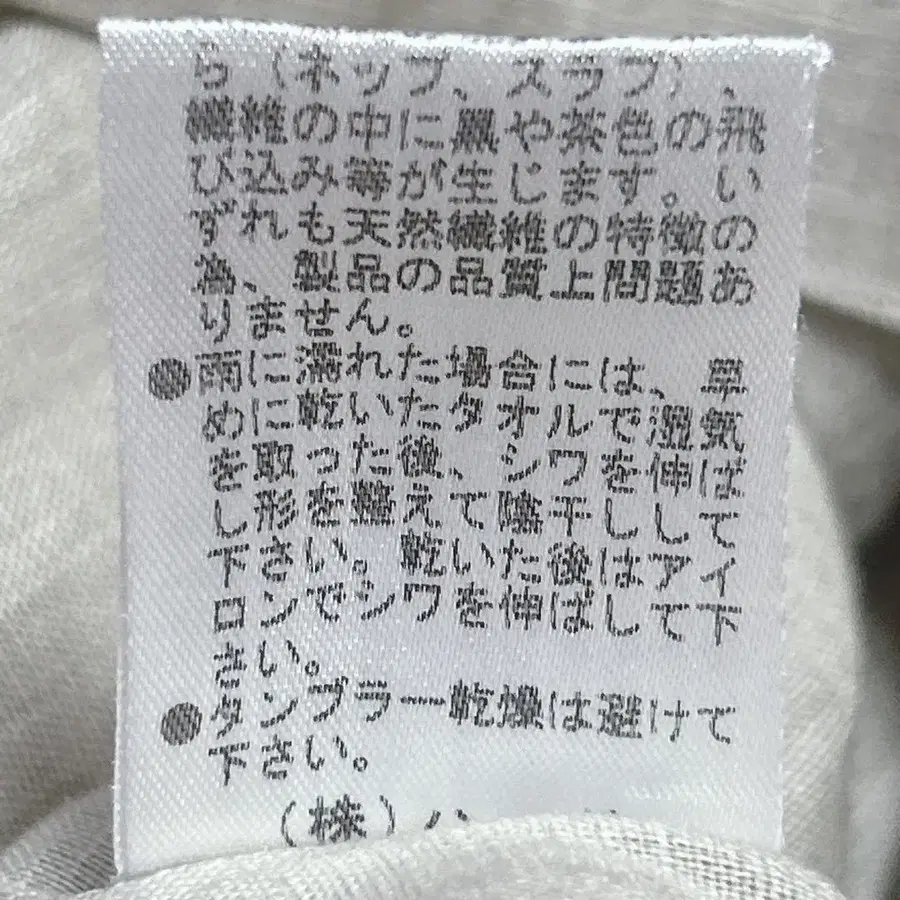 ら（ネップ、スラブ）、
繊維の中に黒や茶色の飛
び込み等が生じます。い
ずれも天然繊維の特徴の
為、製品の品質上問題あ
りません。
●雨に濡れた場合には、早
めに乾いたタオルで湿気
を取った後、シワを伸ば
し形を整えて陰干しして
下さい。乾いた後はアイ
ロンでシワを伸ばして下
さい。
●タンブラー乾燥は避けて
下さい。
（株）ハ